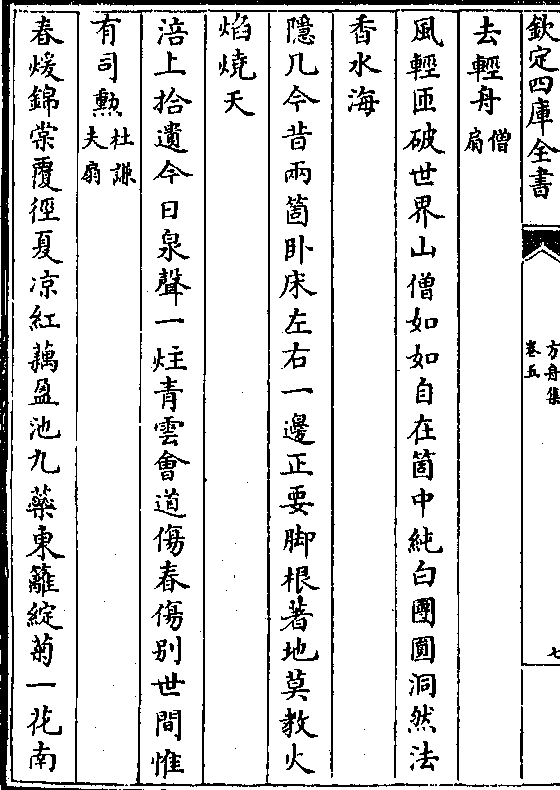 欽定四庫全書
方舟集
卷五
七
去輕舟僧扇
風輕匝破世界山僧如如自在箇中純白團圓洞然法
香水海
隱几今昔兩箇卧床左右一邊正要脚根著地莫教火
焰燒天
涪上拾遺今日泉聲一炷青雲會道傷春傷別世間惟
有司勲杜謙夫扇
春煖錦棠覆徑夏凉紅藕盈池九藥東籬綻菊一花南